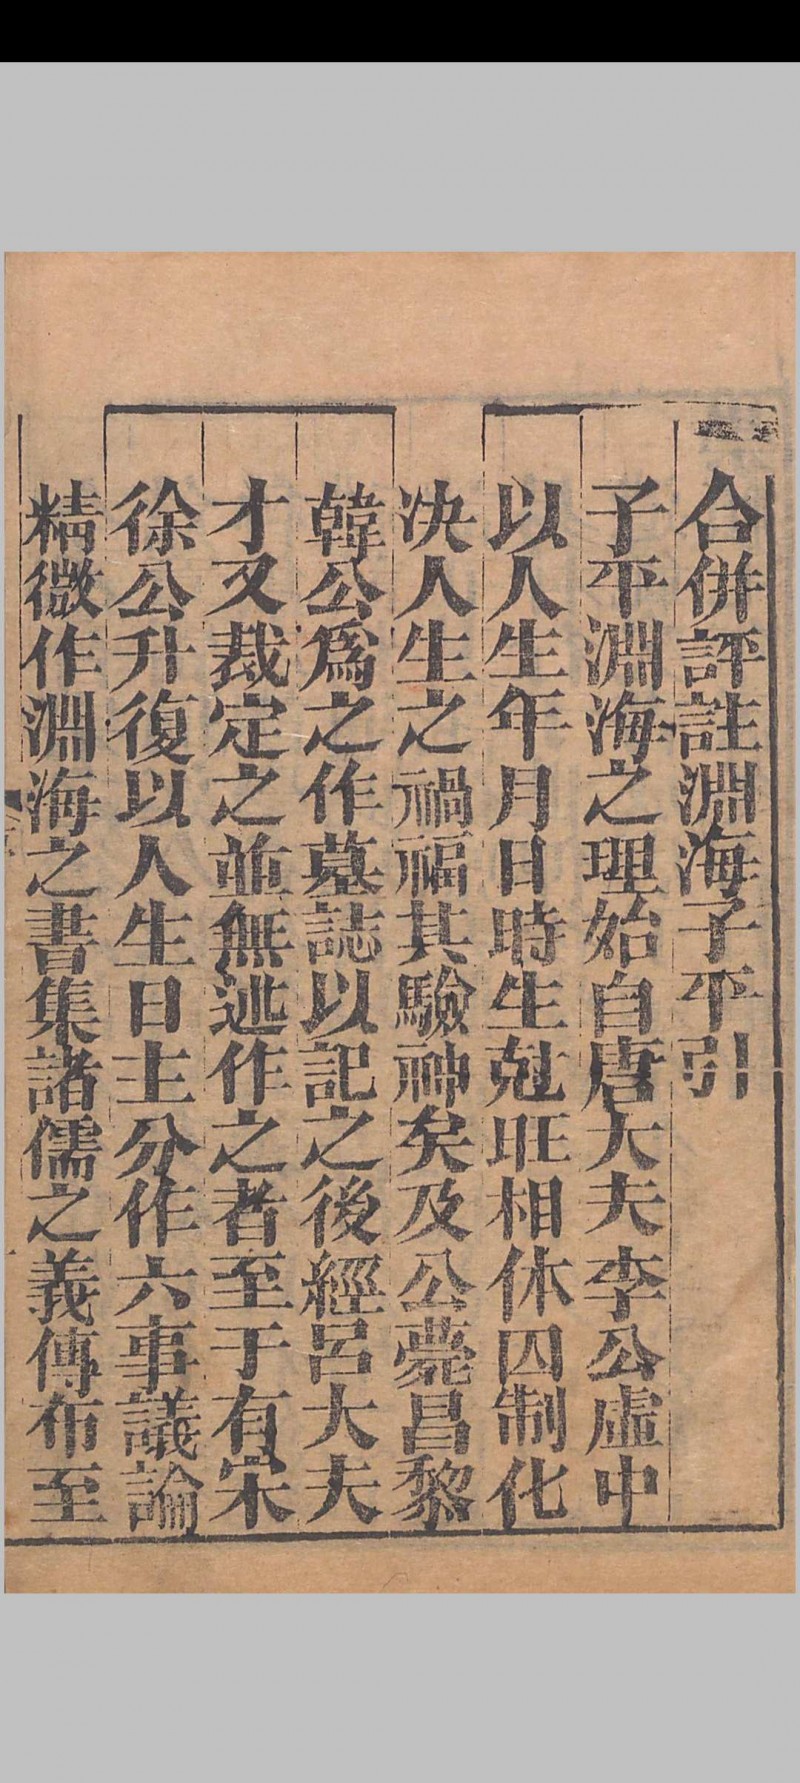 合併評註淵海子平引
子平淵海之理始自唐大夫李公虛中
以人生年月日時生尅旺相休囚制化
决人生之禍福其驗神矣及公薨昌黎
韓公爲之作墓誌以記之後經呂大夫
才又裁定之並無述作之者至于有宋
徐公升復以人生日主分作六事議論
精微作淵海之書集諸儒之義傳布至